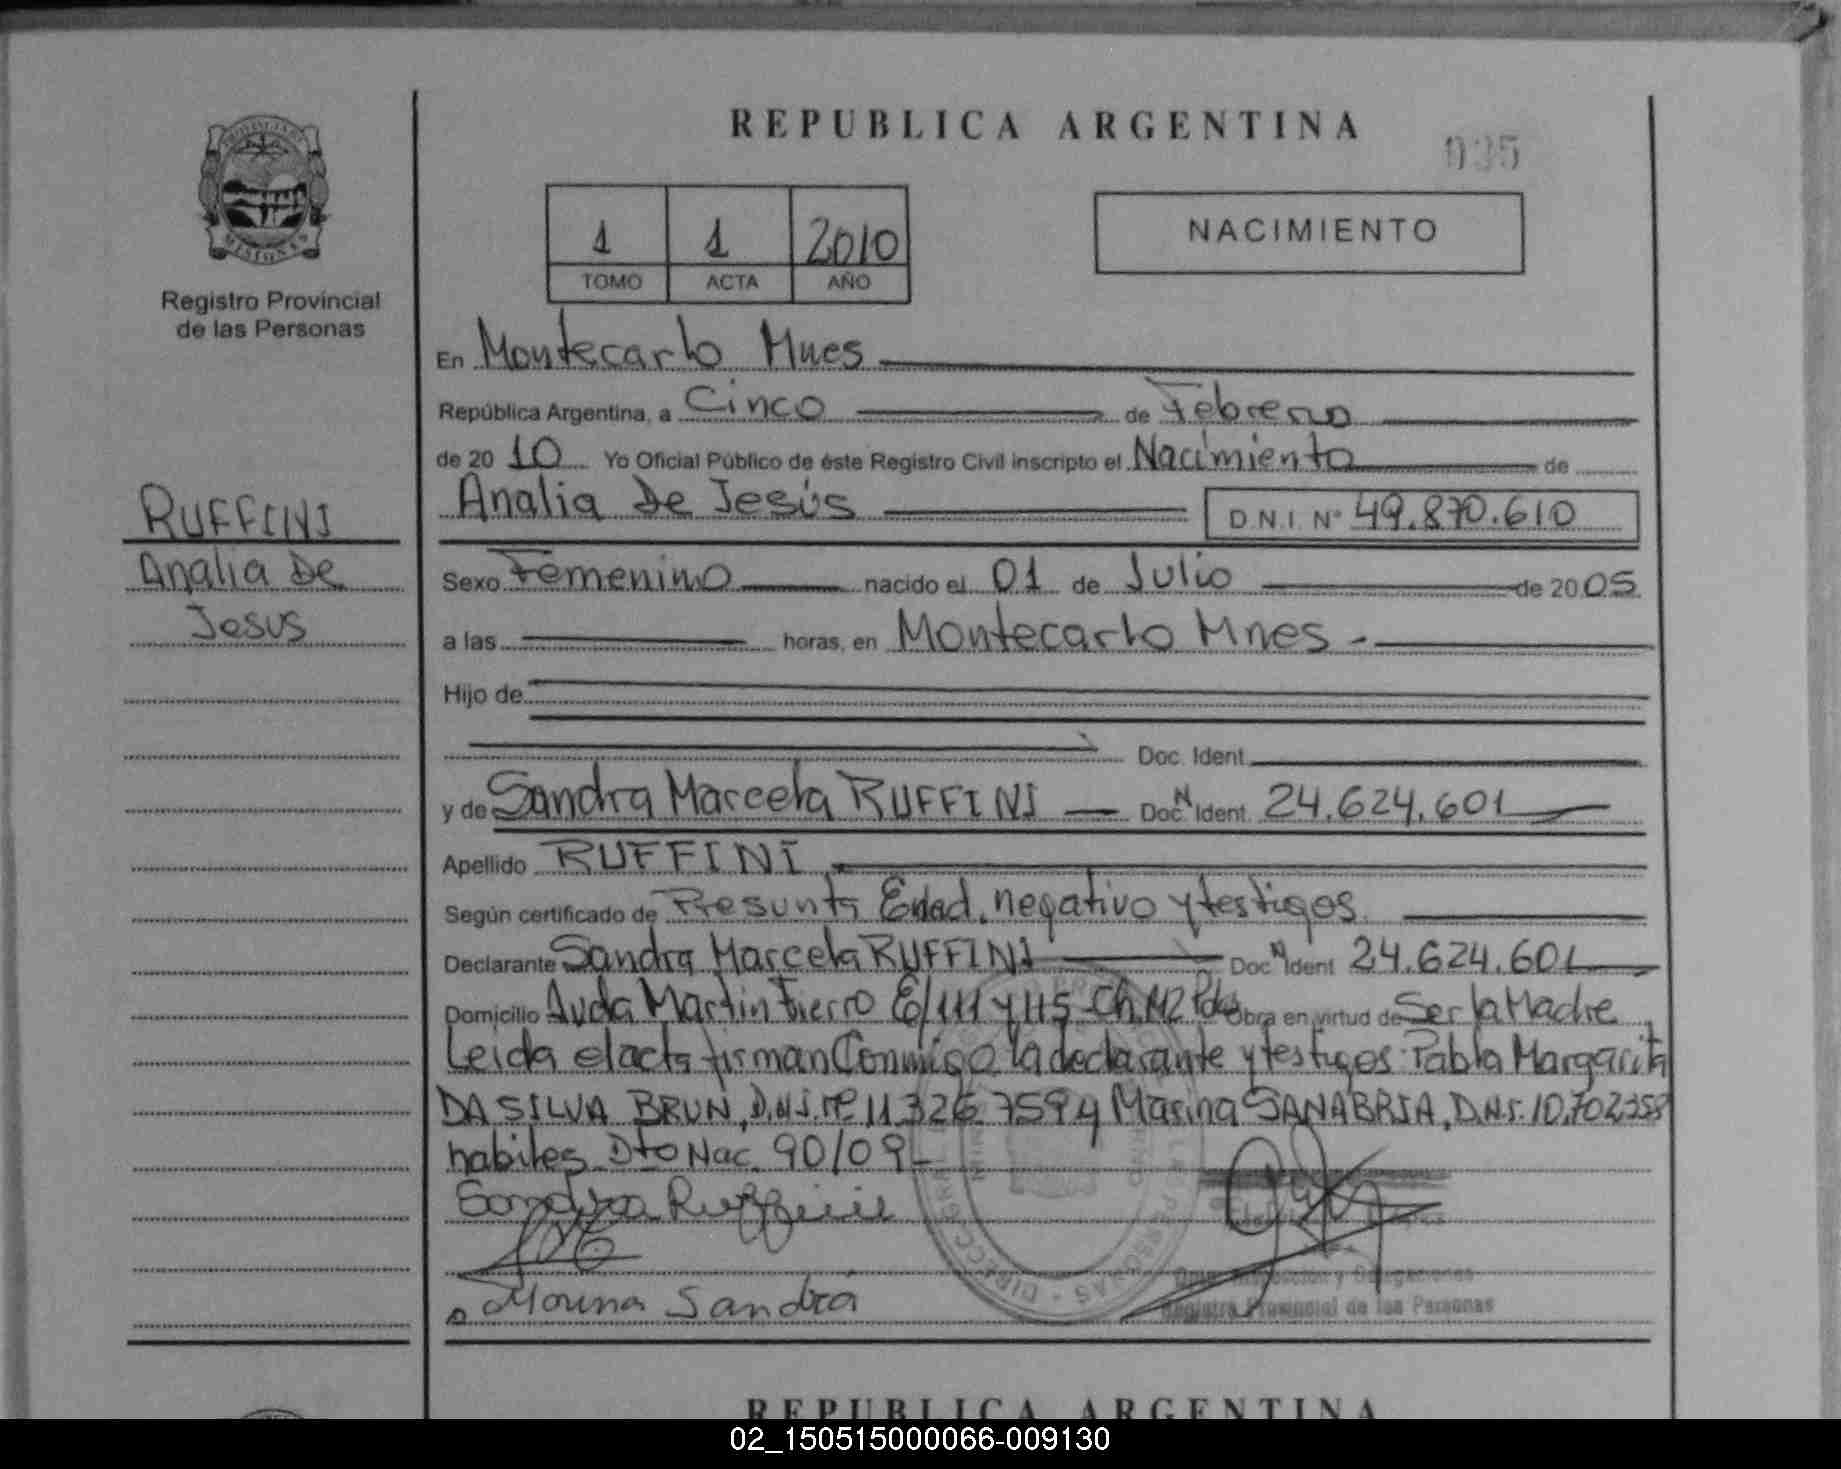 REPUBLICA ARGENTINA
035
PROVINCIA DE
MISIONES
Registro Provincial
de las Personas
1 1 2010
TOMO ACTA AÑO
NACIMIENTO
En Montecarlo Mnes
República Argentina, a Cinco de Febrero
de 20 10 Yo Oficial Público de éste Registro Civil inscripto el Nacimiento de
Analia De Jesús D.N.I. Nº 49.870.610
RUFFINI
Analia De
Jesus
Sexo Femenino nacido el 01 de Julio de 20 05
a las horas, en Montecarlo Mnes -
Hijo de
Doc. Ident.
y de Sandra Marcela RUFFINI Doc. N Ident. 24.624.601
Apellido RUFFINI
Según certificado de Presunta Edad, negativo y testigos
Declarante Sandra Marcela RUFFINI Doc N Ident 24.624.601
Domicilio Avda Martin Fierro E/111 y 115 - Ch. 112 Pdas Obra en virtud de Ser la Madre
Leida el acta firman Conmigo la declarante y testigos: Pabla Margarita
DA SILVA BRUN, D.N.I. Nº 11.326.759 y Marina SANABRIA, D.N.I. 10.702.258
habiles Dto Nac. 90/09-
Sandra Ruffini
Registro Provincial de las Personas
REPUBLICA ARGENTINA
02_150515000066-009130